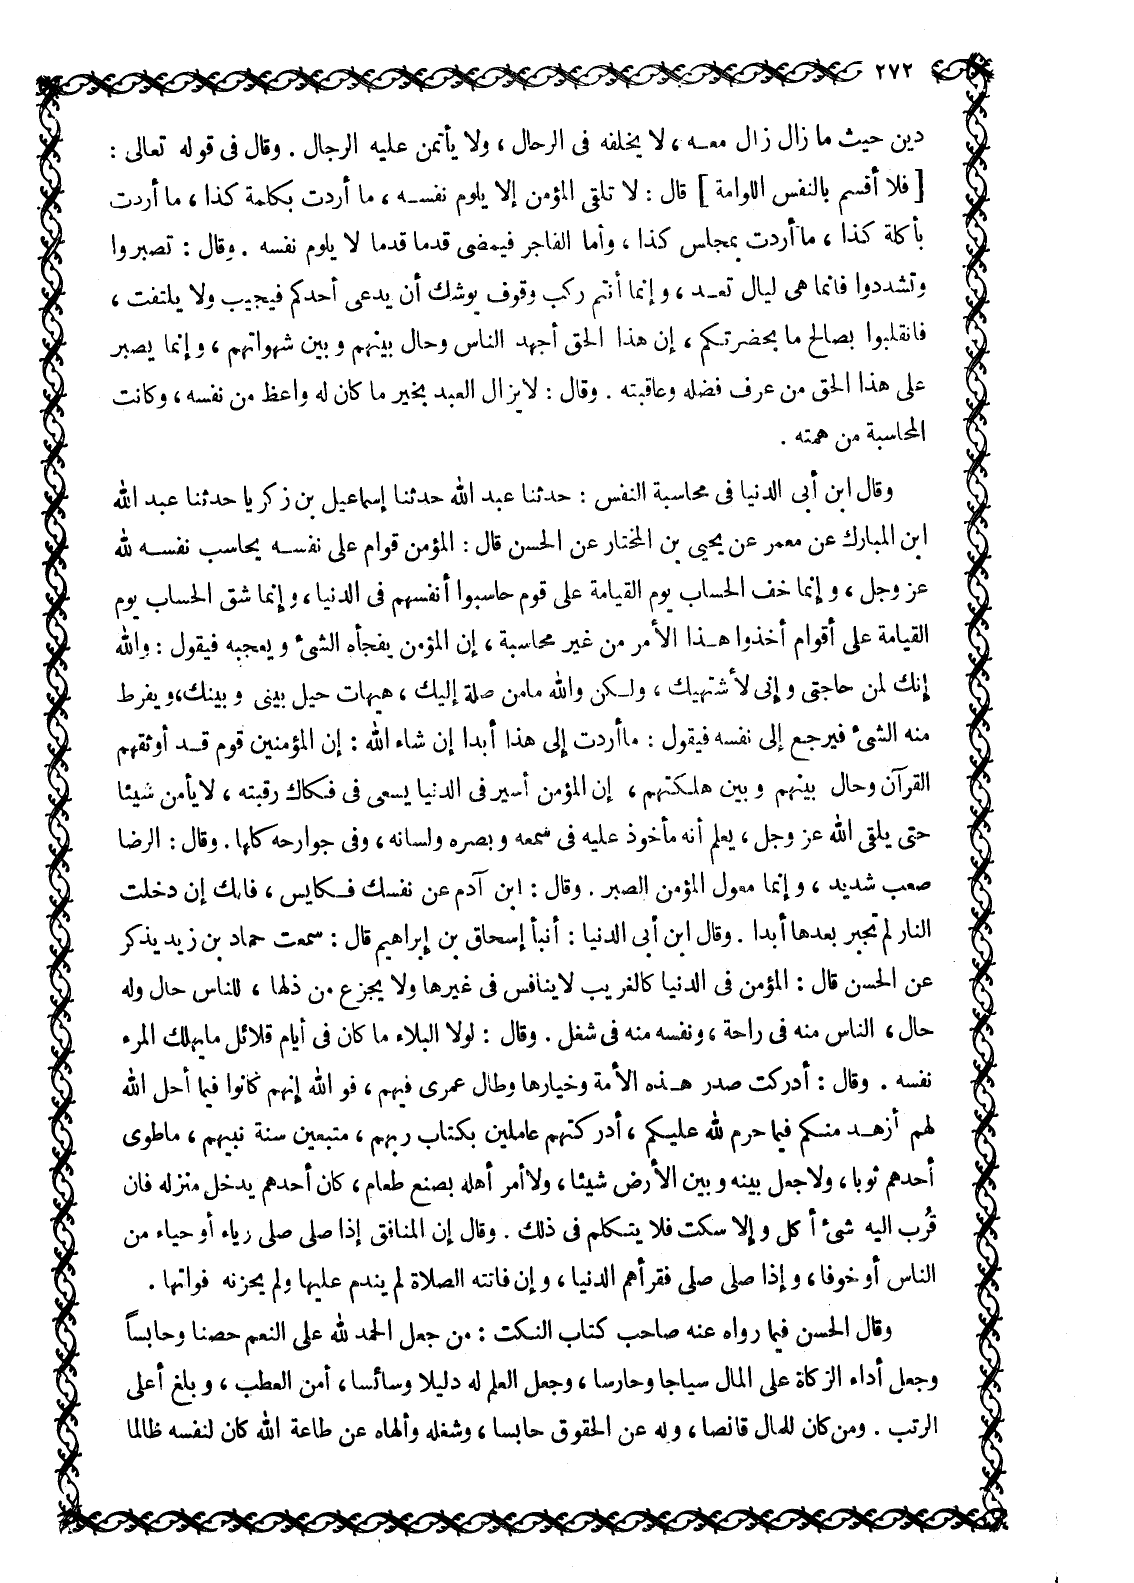 ٢٧٢
دين حيث ما زال زال معه ، لا يخلفه فى الرحال ، ولا يأتمن عليه الرجال . وقال فى قوله تعالى :
[ فلا أقسم بالنفس اللوامة ] قال : لا تلقى المؤمن إلا يلوم نفسه ، ما أردت بكلمة كذا ، ما أردت
بأكلة كذا ، ما أردت بمجلس كذا ، وأما الفاجر فيمضى قدما قدما لا يلوم نفسه . وقال : تصبروا
وتشددوا فانما هى ليال تعد ، وإنما أنتم ركب وقوف يوشك أن يدعى أحدكم فيجيب ولا يلتفت ،
فانقلبوا بصالح ما بحضرتكم ، إن هذا الحق أجهد الناس وحال بينهم وبين شهواتهم ، وإنما يصبر
على هذا الحق من عرف فضله وعاقبته . وقال : لا يزال العبد بخير ما كان له واعظ من نفسه ، وكانت
المحاسبة من همته .
وقال ابن أبى الدنيا فى محاسبة النفس : حدثنا عبد الله حدثنا إسماعيل بن زكريا حدثنا عبد الله
ابن المبارك عن معمر عن يحيى بن المختار عن الحسن قال : المؤمن قوام على نفسه يحاسب نفسه لله
عز وجل ، وإنما خف الحساب يوم القيامة على قوم حاسبوا أنفسهم فى الدنيا ، وإنما شق الحساب يوم
القيامة على أقوام أخذوا هذا الأمر من غير محاسبة ، إن المؤمن يفجأه الشئ ويعجبه فيقول : والله
إنك لمن حاجتى وإنى لأشتهيك ، ولكن والله مامن صلة إليك ، هيهات حيل بينى وبينك ، ويفرط
منه الشئ فيرجع إلى نفسه فيقول : ماأردت إلى هذا أبدا إن شاء الله : إن المؤمنين قوم قد أوثقهم
القرآن وحال بينهم وبين هلكتهم ، إن المؤمن أسير فى الدنيا يسعى فى فكاك رقبته ، لايأمن شيئا
حتى يلقى الله عز وجل ، يعلم أنه مأخوذ عليه فى سمعه وبصره ولسانه ، وفى جوارحه كلها . وقال : الرضا
صعب شديد ، وإنما معول المؤمن الصبر . وقال : ابن آدم عن نفسك فكايس ، فانك إن دخلت
النار لم تجبر بعدها أبدا . وقال ابن أبى الدنيا : أنبأ إسحاق بن إبراهيم قال : سمعت حماد بن زيد يذكر
عن الحسن قال : المؤمن فى الدنيا كالغريب لاينافس فى غيرها ولا يجزع من ذلها ، للناس حال وله
حال ، الناس منه فى راحة ، ونفسه منه فى شغل . وقال : لولا البلاء ما كان فى أيام قلائل مايهلك المرء
نفسه . وقال : أدركت صدر هذه الأمة وخيارها وطال عمرى فيهم ، فو الله إنهم كانوا فيما أحل الله
لهم أزهد منكم فيما حرم لله عليكم ، أدركتهم عاملين بكتاب ربهم ، متبعين سنة نبيهم ، ماطوى
أحدهم ثوبا ، ولاجعل بينه وبين الأرض شيئا ، ولاأمر أهله بصنع طعام ، كان أحدهم يدخل منزله فان
قُرب اليه شئ أكل وإلا سكت فلا يتكلم فى ذلك . وقال إن المنافق إذا صلى صلى رياء أو حياء من
الناس أو خوفا ، وإذا صلى صلى فقرأهم الدنيا ، وإن فاتته الصلاة لم يندم عليها ولم يحزنه فواتها .
وقال الحسن فيما رواه عنه صاحب كتاب النكت : من جعل الحمد لله على النعم حصنا وحابساً
وجعل أداء الزكاة على المال سياجا وحارسا ، وجعل العلم له دليلا وسائسا ، أمن العطب ، وبلغ أعلى
الرتب . ومن كان للمال قانصا ، وله عن الحقوق حابسا ، وشغله وألهاه عن طاعة الله كان لنفسه ظالما